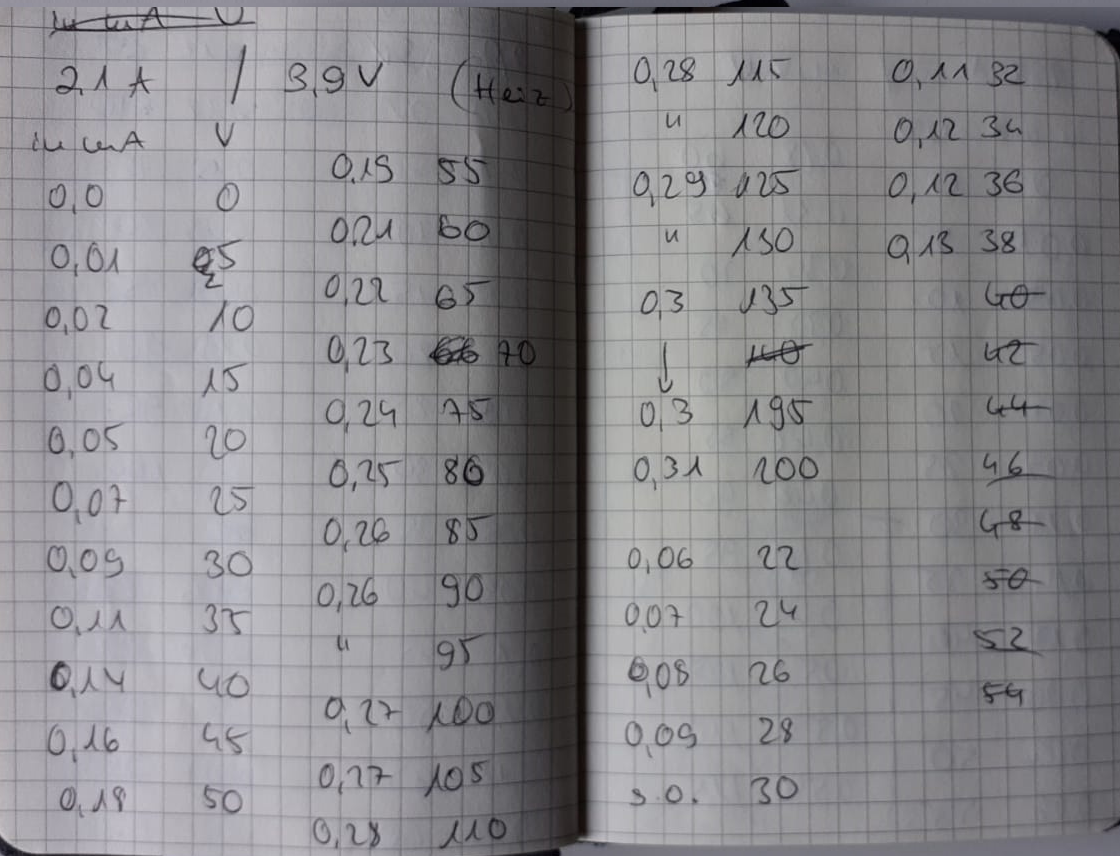 in mA V
2,1 A / 3,9 V (Heiz)
in mA V
0,0 0
0,01 5
0,02 10
0,04 15
0,05 20
0,07 25
0,09 30
0,11 35
0,14 40
0,16 45
0,18 50
0,19 55
0,21 60
0,22 65
0,23 70
0,24 75
0,25 80
0,26 85
0,26 90
" 95
0,27 100
0,27 105
0,28 110
0,28 115
" 120
0,29 125
" 130
0,3 135
↓ 140
0,3 195
0,31 200
0,06 22
0,07 24
0,08 26
0,09 28
s.o. 30
0,11 32
0,12 34
0,12 36
0,13 38
40
42
44
46
48
50
52
54